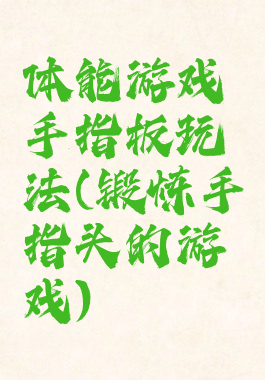 体能游戏
手指板玩
法(锻炼手
指头的游
戏)